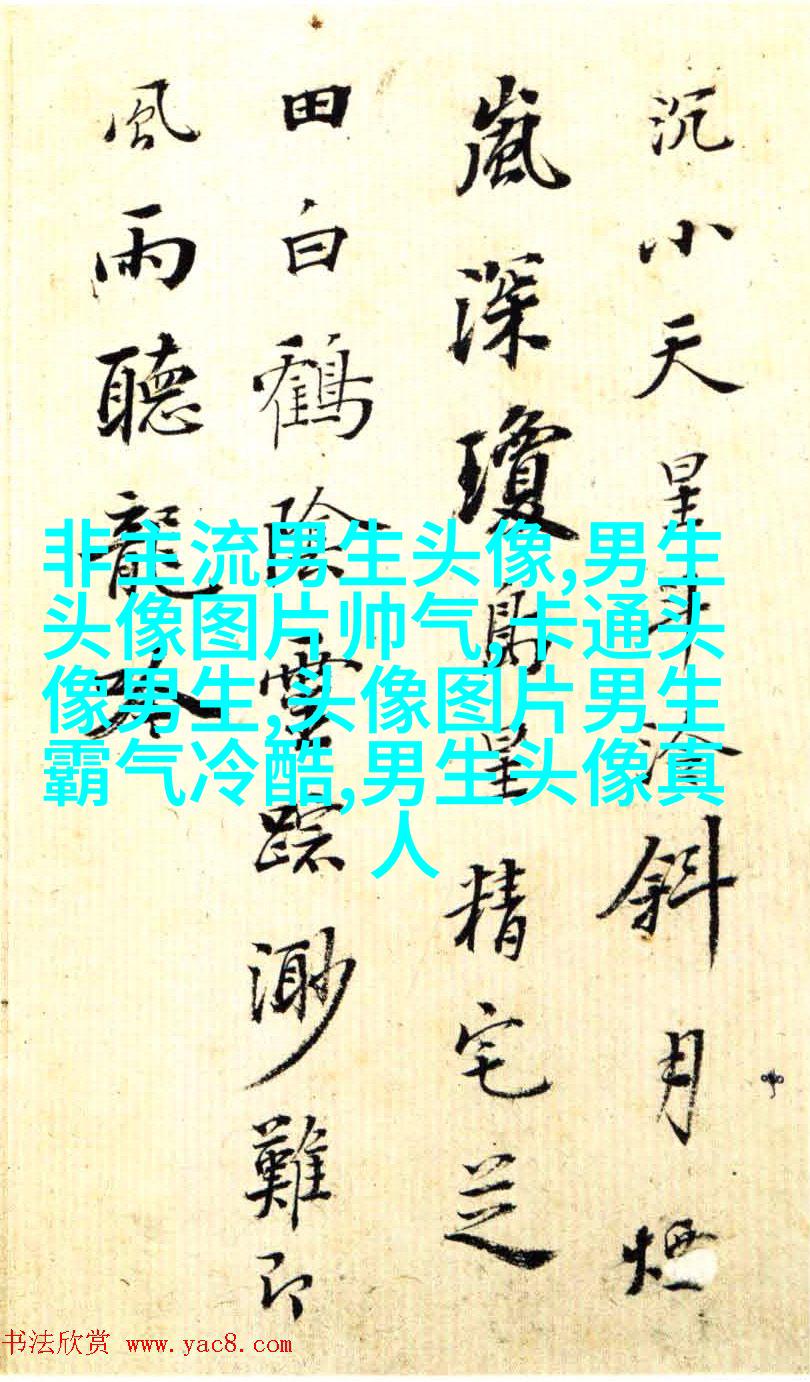 沉小天星斗冷斜月煙
嵐深瓊島星精宅芝
田白鶴雲踪渺難即
風雨聽龍吟
非主流男生头像,男生
头像图片帅气,卡通头
像男生,头像图片男生
霸气冷酷,男生头像真
人
书法欣赏 www.yac8.com